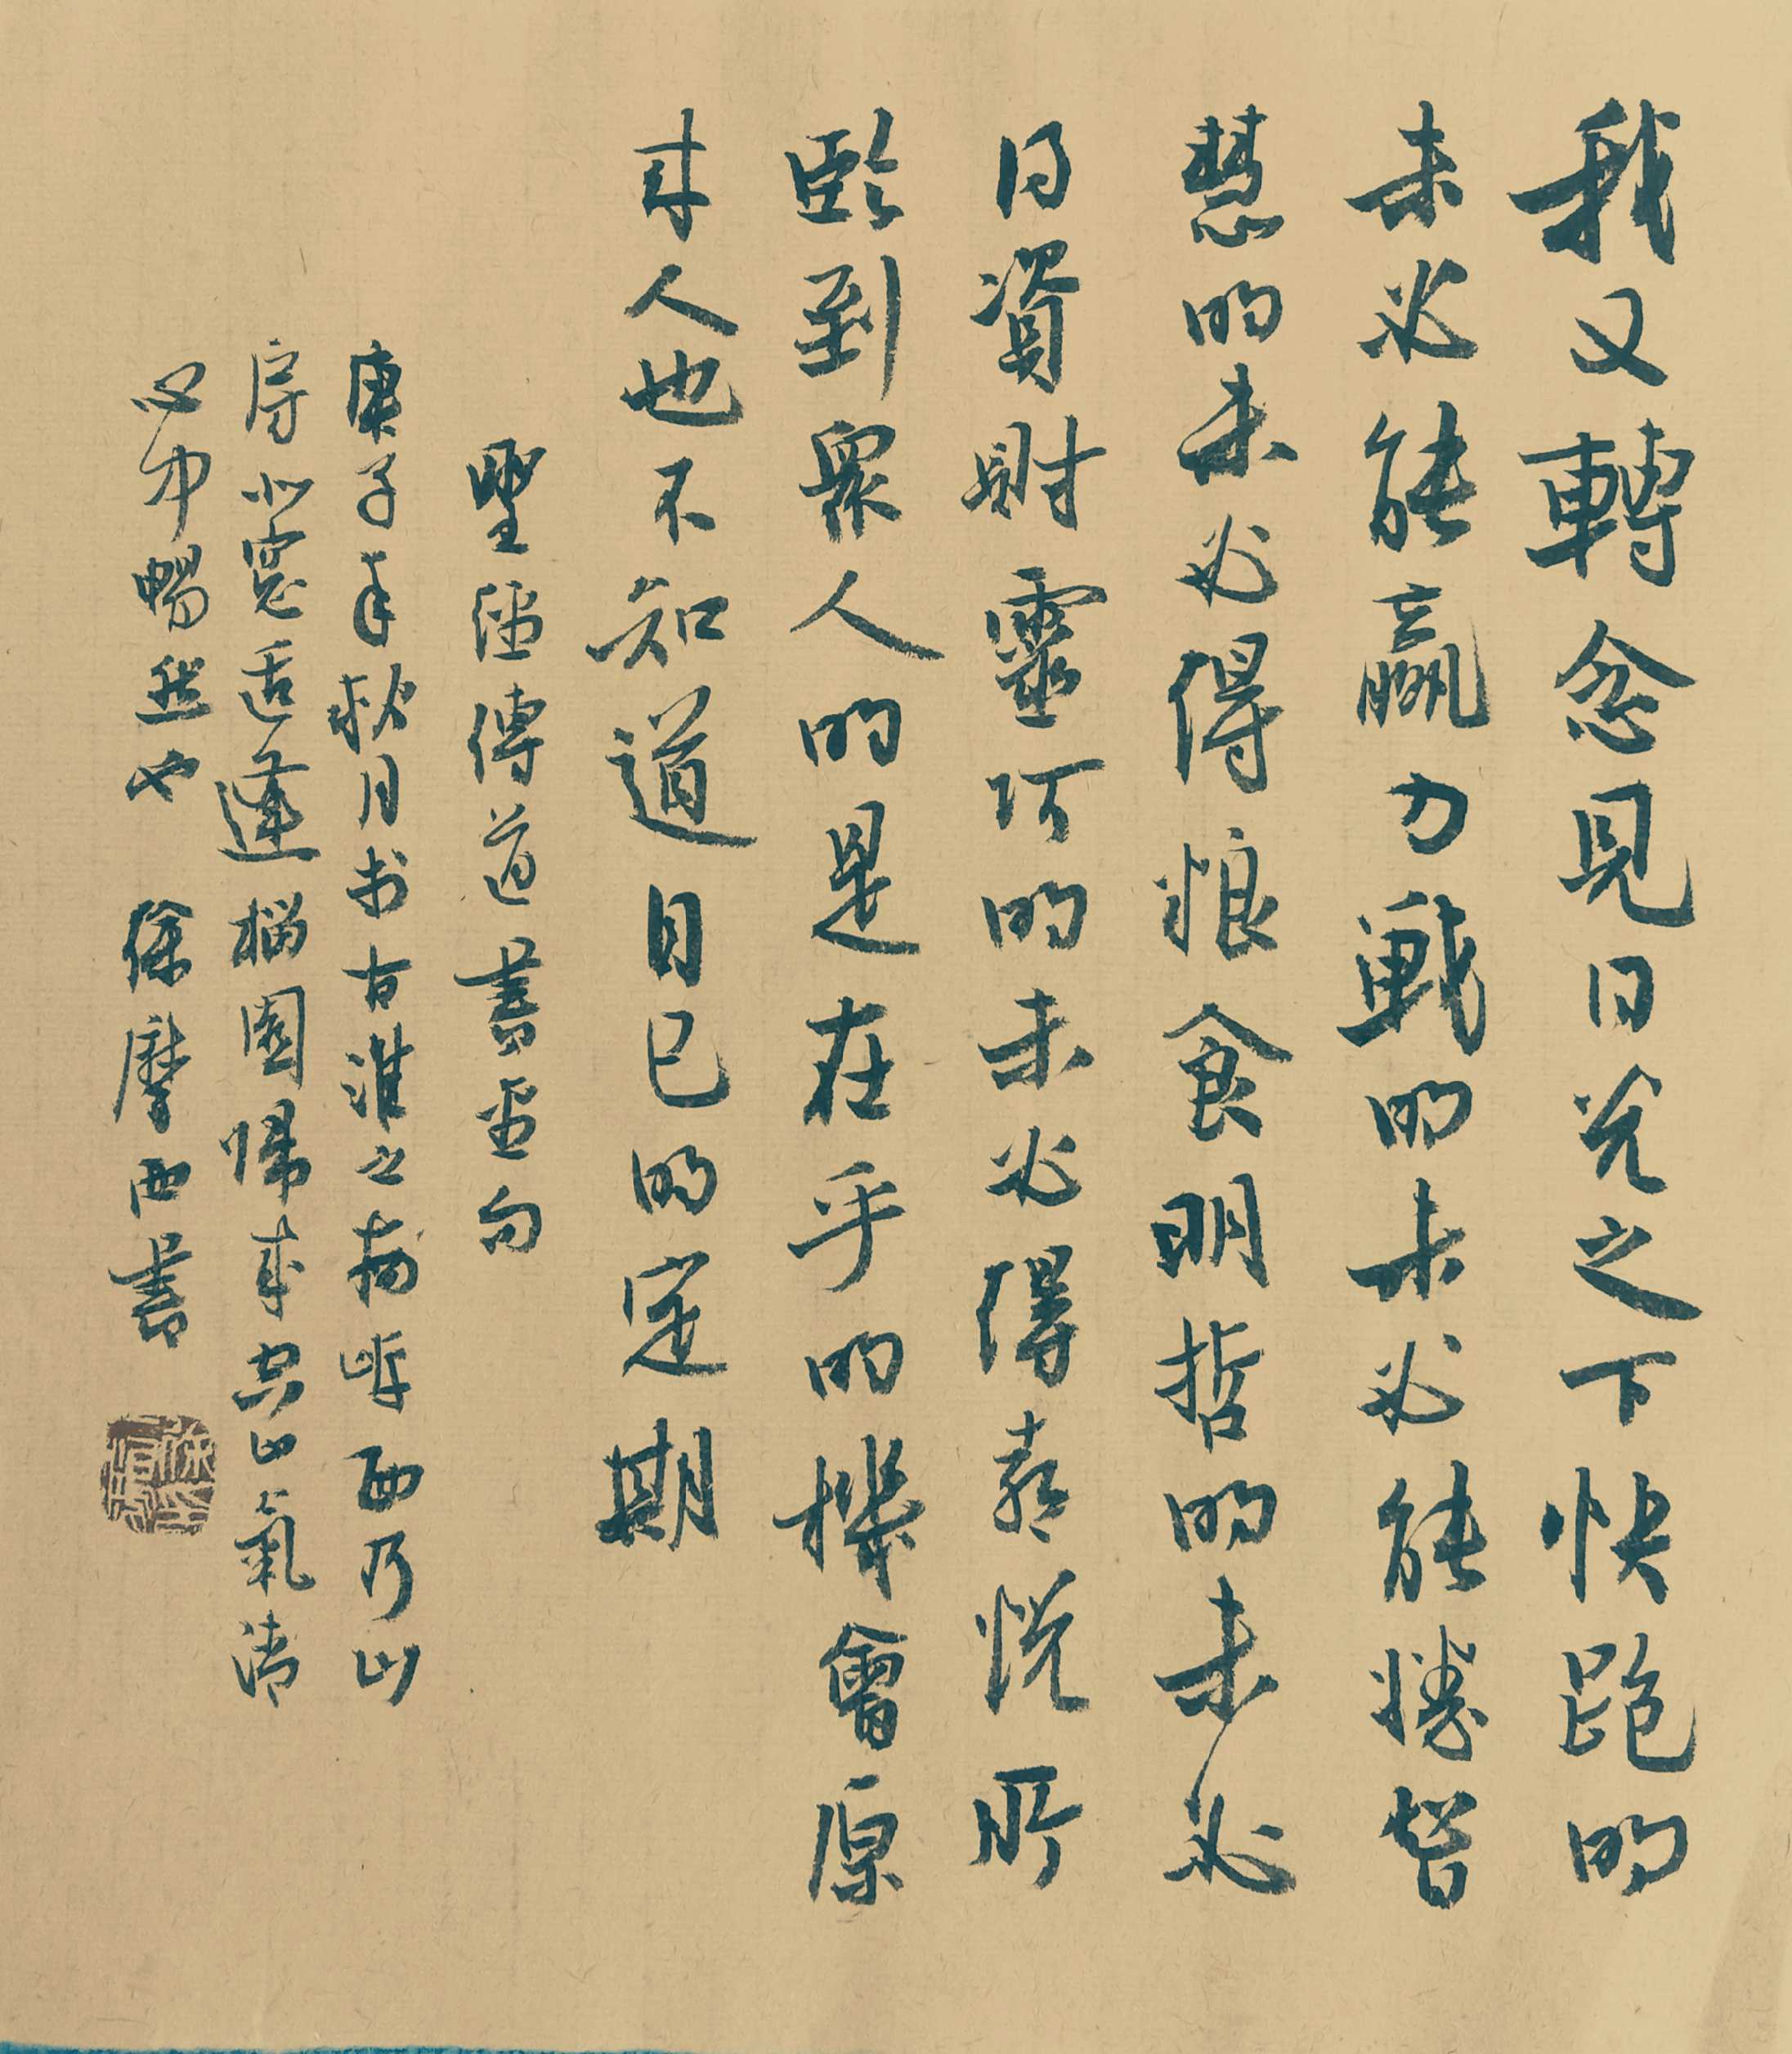 我又轉念見日光之下快跑的
未必能贏力戰的未必能勝智
慧的未必得糧食明哲的未必
日資財靈巧的未必得喜悅所
臨到眾人的是在乎的機會原
来人也不知道自己的定期
聖經傳道書金句
庚子年秋月书古淮之西乃山
房北窓适逢榴園歸来空山氣清
心中暢然也 徐摩西書